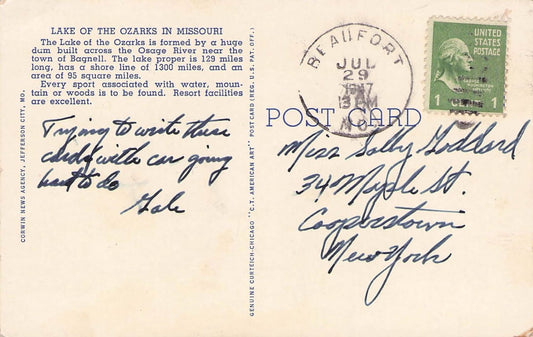 LAKE OF THE OZARKS IN MISSOURI
The Lake of the Ozarks is formed by a huge
dam built across the Osage River near the
town of Bagnell. The lake proper is 129 miles
long, has a shore line of 1300 miles, and an
area of 95 square miles.
Every sport associated with water, moun-
tain or woods is to be found. Resort facilities
are excellent.
Trying to write these
cards with car going
hard to do
Gale
CORWIN NEWS AGENCY, JEFFERSON CITY, MO.
GENUINE CURTEICH-CHICAGO "C.T. AMERICAN ART" POST CARD (REG. U.S. PAT. OFF.)
POST CARD
BEAUFORT
JUL
29
1947
3 PM
MO.
UNITED
STATES
POSTAGE
1 1
Miss Sally Goddard
34 Maple St.
Cooperstown
New York